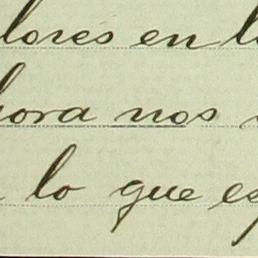 lores en l
hora nos
lo que es